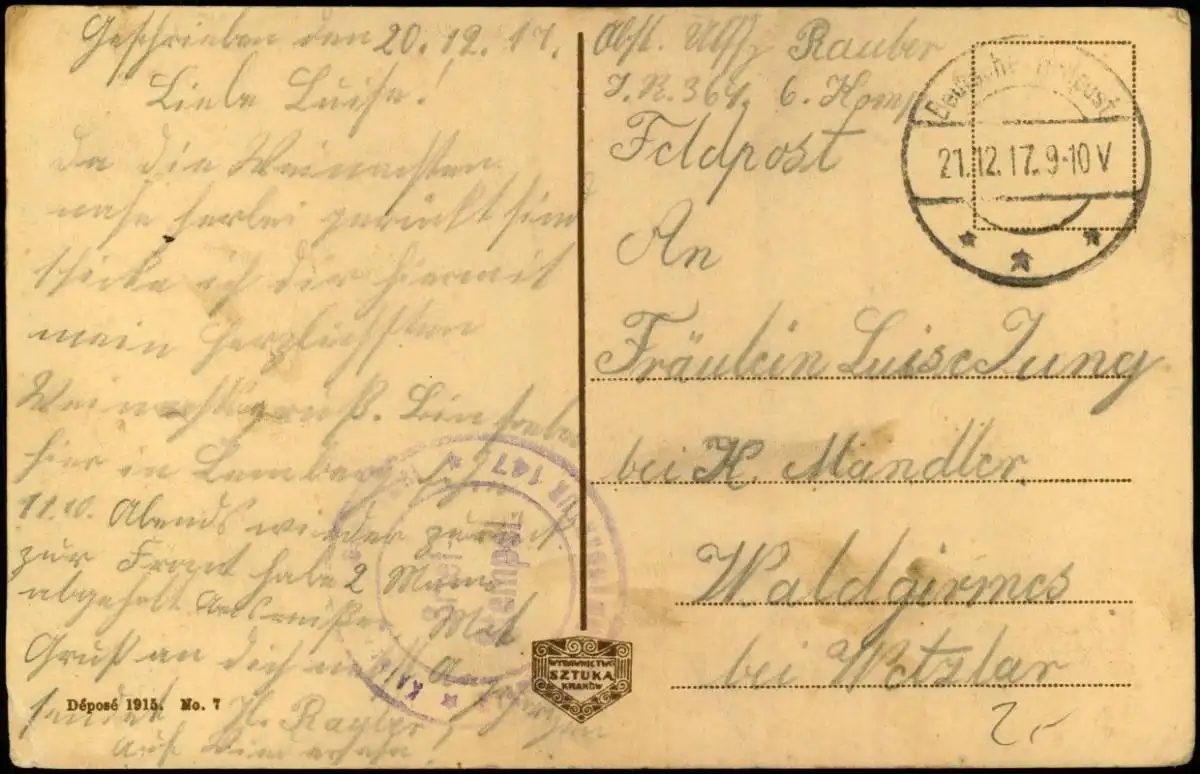 Geschrieben den 20.12.17.
Liebe Luise.
Da die Weinachten
nahe herbei gerückt sind
schicke ich dir hiermit
mein herzlichsten
Weinachtsgruß. Bin
hier in Lemberg
11.10. Abends wieder zurück
zur Front habe 2 Mann
abgeholt Ausreißer. Mit
Gruß an dich
sendet
Auf Wiedersehn
Absl. Uffz Rauber
J.R. 364. 6. Komp
Feldpost
An
Fräulein Luise Jung
bei K. Mandler
Waldgirmes
bei Wetzlar
2,-
21.12.17.9-10V
147
Brief
stempel
WYDAWNICTWO
SZTUKA
KRAKÓW
Déposé 1915. No. 7